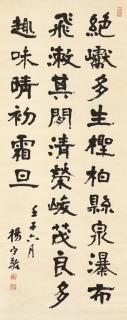 絶巘多生檉柏縣泉瀑布
飛漱其間清榮峻茂良多
趣味晴初霜旦
壬子六月
楊守敬